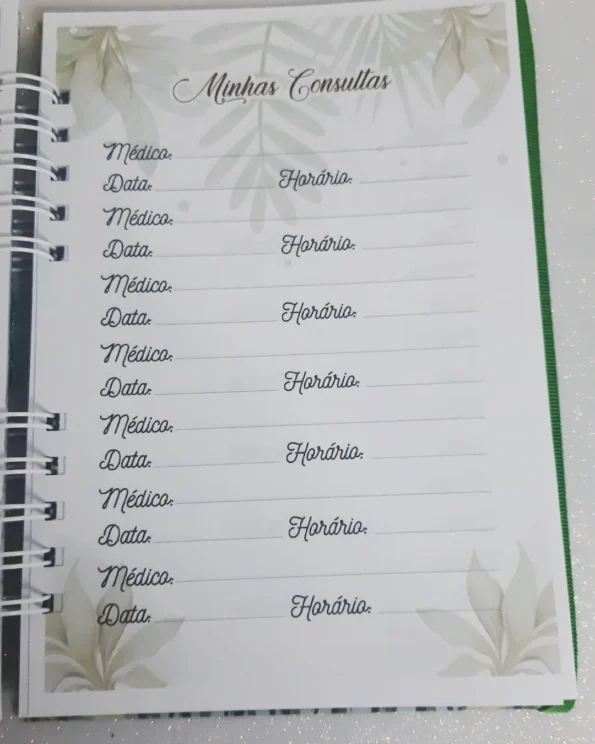 Minhas Consultas
Médico:
Data: Horário:
Médico:
Data: Horário:
Médico:
Data: Horário:
Médico:
Data: Horário:
Médico:
Data: Horário:
Médico:
Data: Horário:
Médico:
Data: Horário: